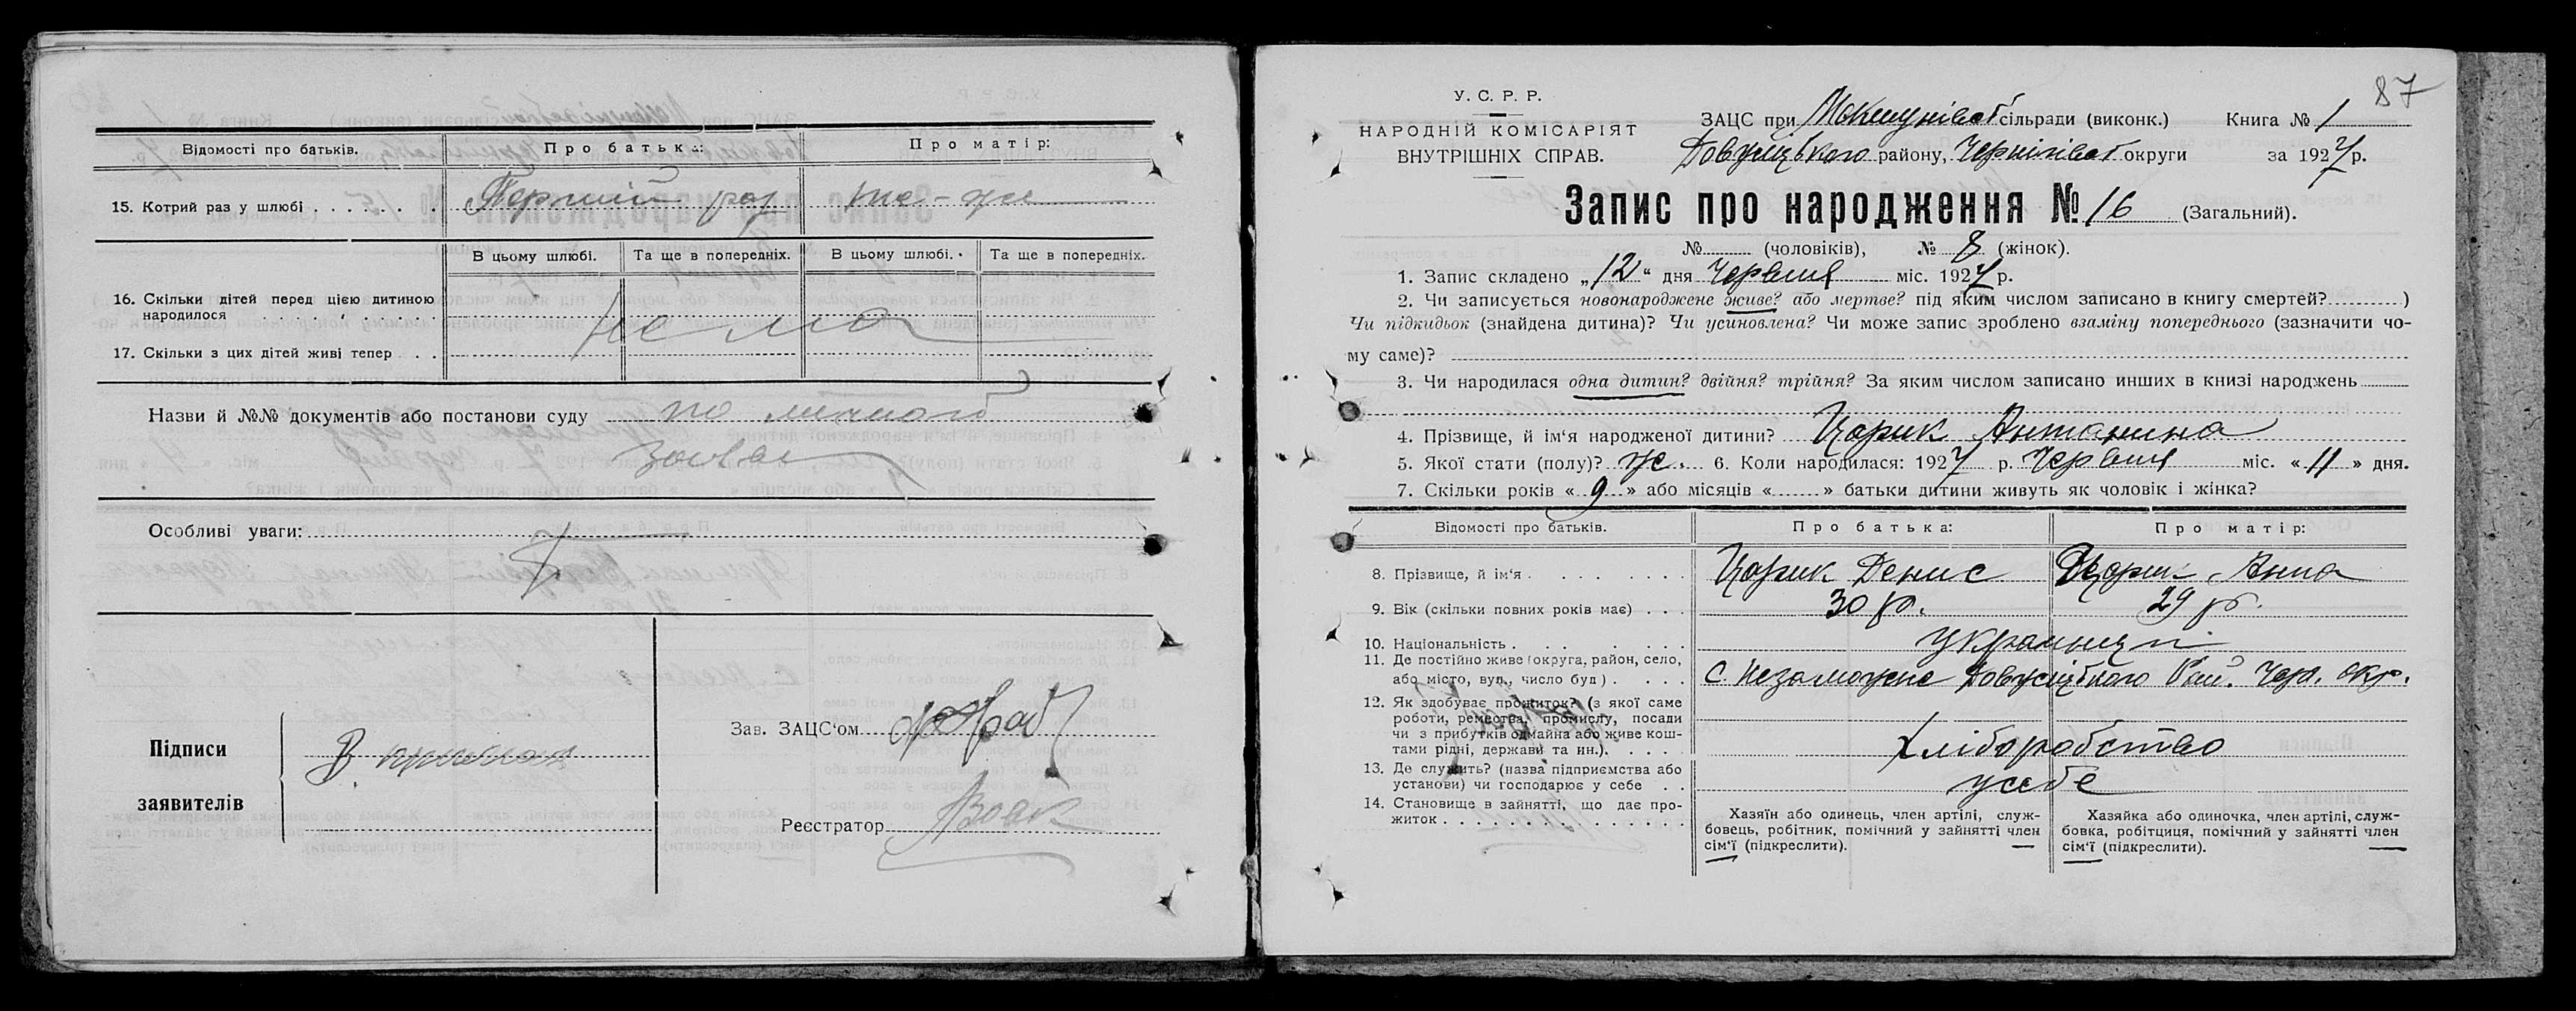 Відомості про батьків.
Про батька:
Про матір:
15. Котрий раз у шлюбі
Перший раз
те-же
В цьому шлюбі.
Та ще в попередніх.
В цьому шлюбі.
Та ще в попередніх.
16. Скільки дітей перед цією дитиною
народилося
нема
17. Скільки з цих дітей живі тепер
Назви й №№ документів або постанови суду
по личной
заяві
Особливі уваги:
Підписи
заявителів
Зав. ЗАЦС'ом
Реєстратор
Вовк
87
У. С. Р. Р.
НАРОДНІЙ КОМІСАРІЯТ
ВНУТРІШНІХ СПРАВ.
ЗАЦС при сільради (виконк.) Книга № 1
району, Чернігівської округи за 1927 р.
Запис про народження № 16 (Загальний).
№ (чоловіків), № 8 (жінок).
1. Запис складено „12" дня Червня міс. 1927 р.
2. Чи записується новонароджене живе? або мертве? під яким числом записано в книгу смертей? )
Чи підкидьок (знайдена дитина)? Чи усиновлена? Чи може запис зроблено взаміну попереднього (зазначити чо-
му саме)?
3. Чи народилася одна дитин? двійня? трійня? За яким числом записано инших в книзі народжень
4. Прізвище, й ім'я народженої дитини? Царик Антанина
5. Якої стати (полу)? же. 6. Коли народилася: 1927 р. Червня міс. «11» дня.
7. Скільки років «9» або місяців « » батьки дитини живуть як чоловік і жінка?
Відомості про батьків.
Про батька:
Про матір:
8. Прізвище, й ім'я
Царик Денис
Царик Анна
9. Вік (скільки повних років має)
30 р.
29 р.
10. Національність
українці
11. Де постійно живе (округа, район, село,
або місто, вул., число буд)
с. Незаможне Довжицького Рай. Чер. окр.
12. Як здобуває прожиток? (з якої саме
роботи, ремества, промислу, посади
чи з прибутків одмайна або живе кош-
тами рідні, держави та ин.).
хліборобство
13. Де служить? (назва підприємства або
установи) чи господарює у себе
усебе
14. Становище в зайнятті, що дає про-
житок
Хазяїн або одинець, член артілі, служ-
бовець, робітник, помічний у зайнятті член
сім'ї (підкреслити).
Хазяйка або одиночка, член артілі, служ-
бовка, робітциця, помічний у зайнятті член
сім'ї (підкреслити).